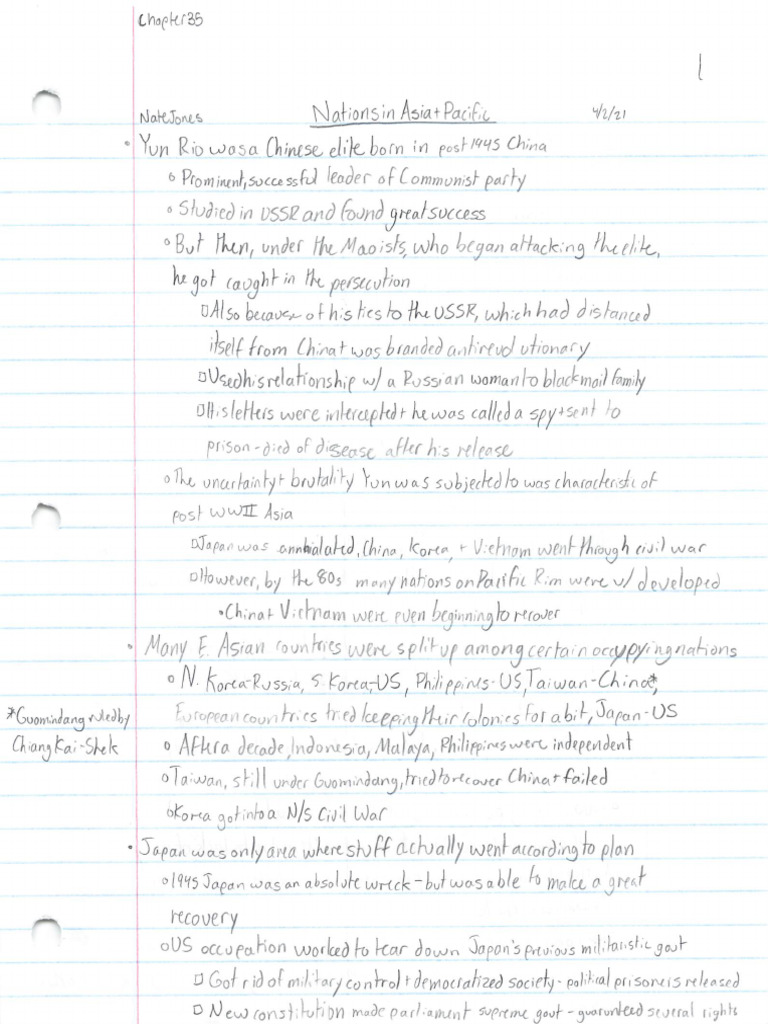 Chapter 35
1
Nate Jones Nations in Asia + Pacific 4/2/21
• Yun Rio was a Chinese elite born in post 1945 China
◦ Prominent, successful leader of Communist party
◦ Studied in USSR and found great success
◦ But then, under the Maoists, who began attacking the elite,
he got caught in the persecution
▫ Also because of his ties to the USSR, which had distanced
itself from China + was branded antirevolutionary
▫ Used his relationship w/ a Russian woman to blackmail family
▫ His letters were intercepted + he was called a spy + sent to
prison - died of disease after his release
◦ The uncertainty + brutality Yun was subjected to was characteristic of
post WWII Asia
▫ Japan was annhialated, China, Korea, + Vietnam went through civil war
▫ However, by the 80s many nations on Pacific Rim were w/ developed
• China + Vietnam were even beginning to recover
• Many E. Asian countries were split up among certain occupying nations
◦ N. Korea-Russia, S. Korea-US, Philippines-US, Taiwan-China*,
European countries tried keeping their colonies for a bit, Japan-US
*Guomindang ruled by
Chiang Kai-Shek
◦ After a decade, Indonesia, Malaya, Philippines were independent
◦ Taiwan, still under Guomindang, tried to recover China + failed
◦ Korea got into a N/S Civil War
• Japan was only area where stuff actually went according to plan
◦ 1945 Japan was an absolute wreck - but was able to make a great
recovery
◦ US occupation worked to tear down Japan's previous militaristic govt
▫ Got rid of military control + democratized society - political prisoners released
▫ New constitution made parliament supreme govt - guarunteed several rights